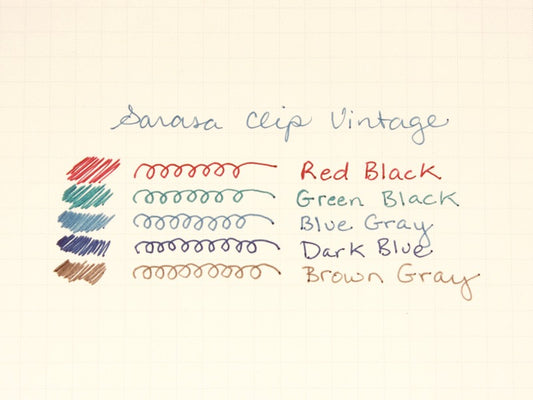 Sarasa Clip Vintage
Red Black
Green Black
Blue Gray
Dark Blue
Brown Gray